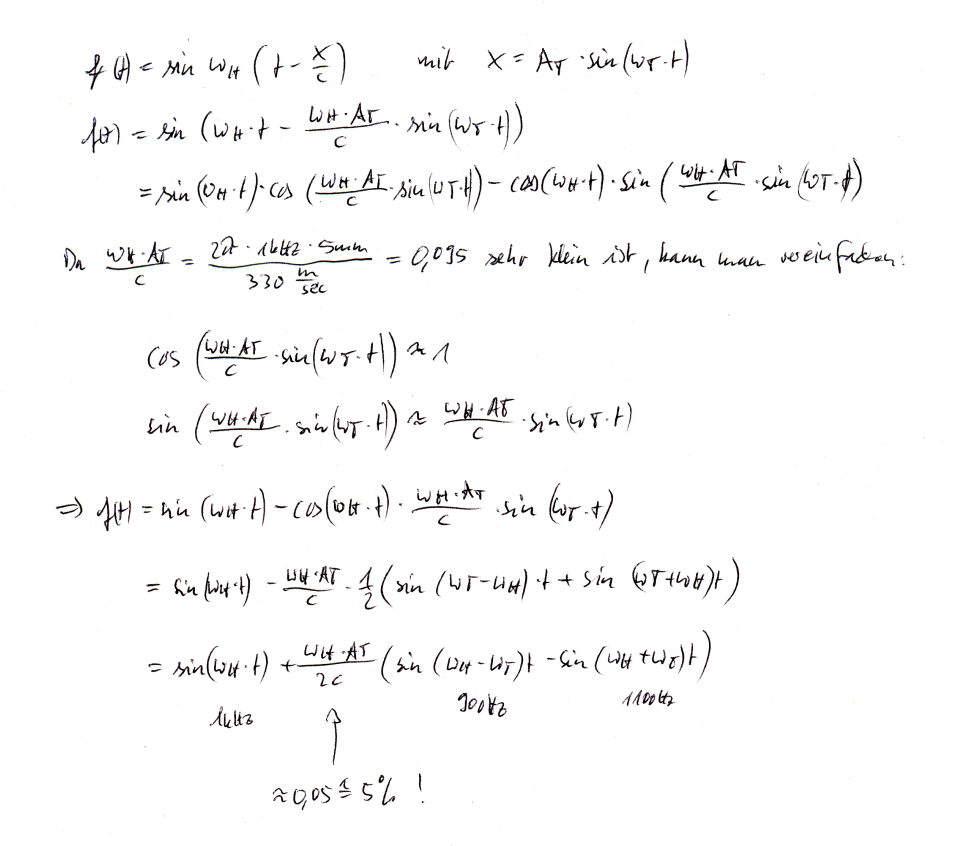 f(t) = sin ω_H (t - x/c) mit x = A_T · sin(ω_T · t)
f(t) = sin (ω_H · t - (ω_H · A_T)/c · sin(ω_T · t))
= sin(ω_H · t) · cos ((ω_H · A_T)/c · sin(ω_T · t)) - cos(ω_H · t) · sin ((ω_H · A_T)/c · sin(ω_T · t))
Da (ω_H · A_T)/c = (2π · 1kHz · 5mm)/(330 m/sec) = 0,095 sehr klein ist, kann man vereinfachen:
cos ((ω_H · A_T)/c · sin(ω_T · t)) ≈ 1
sin ((ω_H · A_T)/c · sin(ω_T · t)) ≈ (ω_H · A_T)/c · sin(ω_T · t)
⇒ f(t) = sin (ω_H · t) - cos(ω_H · t) · (ω_H · A_T)/c · sin (ω_T · t)
= sin(ω_H · t) - (ω_H · A_T)/c · 1/2 (sin (ω_T - ω_H) · t + sin (ω_T + ω_H)t)
= sin(ω_H · t) + (ω_H · A_T)/2c (sin (ω_H - ω_T)t - sin (ω_H + ω_T)t)
1kHz 900Hz 1100Hz
≈ 0,05 ≙ 5% !